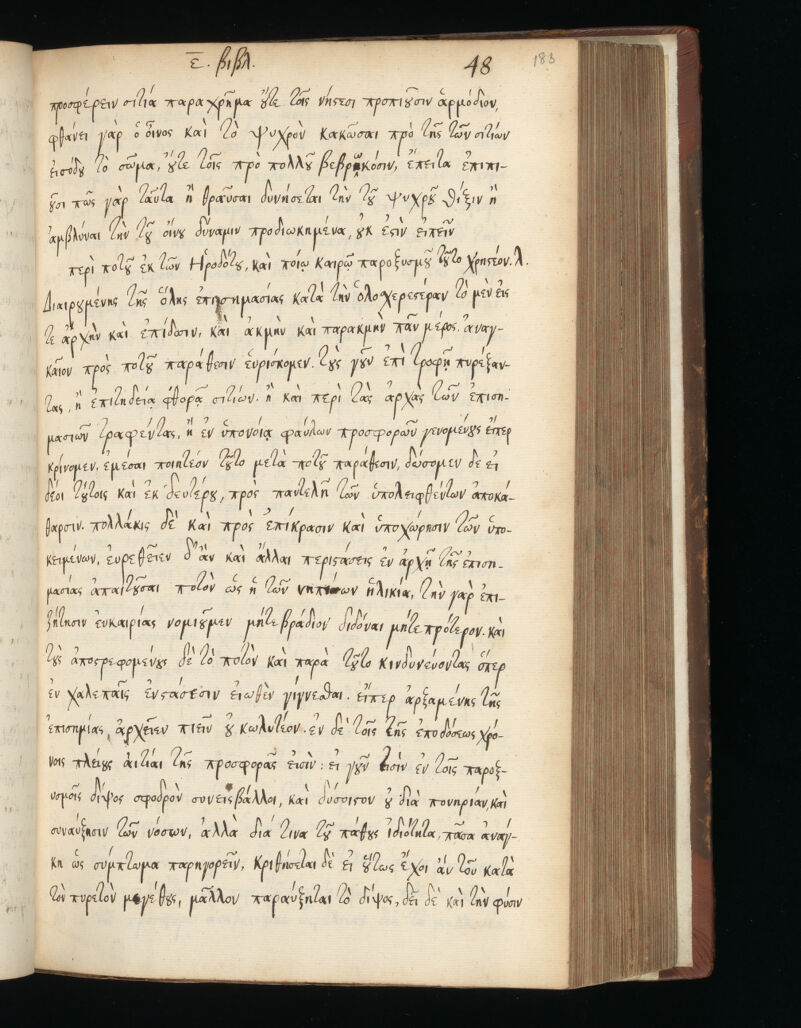 ε̅. βιβλ. 48 183
προσφέρειν σιτία παραχρῆμα οὔτε τοῖς νήσεσι προπιοῦσιν ἁρμόδιον,
φθάνει γὰρ ὁ οἶνος καὶ τὸ ψυχρὸν κακῶσαι πρὸ τῆς τῶν σιτίων
εἰσόδου τὸ σῶμα, οὔτε τοῖς πρὸ πολλοῦ βεβρωκόσιν, ἔπειτα ἐπιπι-
οῦσι πῶς γὰρ ταῦτα ἢ θραῦσαι δυνήσεται τὴν τοῦ ψυχροῦ θίξιν ἢ
ἀμβλύναι τὴν τοῦ οἴνου δύναμιν προδιωκημένα, οὐκ ἔστιν εἰπεῖν
περὶ ποτοῦ ἐκ τῶν Ἡροδότου, καὶ ποίῳ καιρῷ παροξυσμοῦ τοῦτο χρηστέον. λ.
Διαιρουμένης τῆς ὅλης ἐπισημασίας κατὰ τὴν ὁλοχερεστέραν τὸ μὲν εἰς
τε ἀρχὴν καὶ ἐπίδοσιν, καὶ ἀκμὴν καὶ παρακμὴν πᾶν μέρος. ἀναγ-
καῖον πρὸς ποτοῦ παράθεσιν εὑρίσκομεν. τοὺς γοῦν ἐπὶ τροφῇ πυρέξαν-
τας, ἢ ἐπιτηδείᾳ φθορᾷ σιτίων. ἢ καὶ περὶ τὰς ἀρχὰς τῶν ἐπιση-
μασιῶν τραφέντας, ἢ ἐν ὑπονοίᾳ φαύλων προσφορῶν γενομένους εἴπερ
κρίνομεν, ἐμέσαι ποιητέον τοῦτο μετὰ ποτοῦ παράθεσιν, δώσομεν δὲ εἰ
δέοι τούτοις καὶ ἐκ δευτέρου, πρὸς παντελῆ τῶν ὑπολειφθέντων ἀποκά-
θαρσιν. πολλάκις δὲ καὶ πρὸς ἐπίκρασιν καὶ ὑποχώρησιν τῶν ὑπο-
κειμένων, εὑρεθεῖεν δ' ἂν καὶ ἄλλαι περιστάσεις ἐν ἀρχῇ τῆς ἐπιση-
μασίας ἀπαιτοῦσαι ποτὸν ὡς ἡ τῶν νηπίων ἡλικία, τὴν γὰρ ἐπι-
ζήτησιν εὐκαιρίας νομιοῦμεν μήτε βράδιον διδόναι μήτε πρότερον. καὶ
τοὺς ἀποστρεφομένους δὲ τὸ ποτὸν καὶ παρὰ τοῦτο κινδυνεύοντας ὅπερ
ἐν χαλεπαῖς ἐνστάσεσιν εἰωθὲν γίγνεσθαι. εἴπερ ἀρξαμένης τῆς
ἐπισημίας, ἀρχεῖεν πιεῖν οὐ κωλυτέον. ἐν δὲ τοῖς τῆς ἐπιδόσεως χρό-
νοις πλείους αἰτίαι τῆς προσφορᾶς εἰσὶν: εἰ γοῦν τισὶν ἐν τοῖς παροξ-
υσμοῖς δίψος σφοδρὸν συνεισβάλλοι, καὶ δύσοιστον οὐ διὰ πονηρίαν, καὶ
συναύξησιν τῶν νόσων, ἀλλὰ διά τινα τοῦ πάθους ἰδιότητα, πᾶσα ἀνάγ-
κη ὡς σύμπτωμα παρηγορεῖν, κριθήσεται δὲ εἰ οὕτως ἔχοι ἀν τοῦ κατὰ
τὸν πυρετὸν μεγέθους, μᾶλλον παραύξηται τὸ δίψος, δεῖ δὲ καὶ τὴν φύσιν